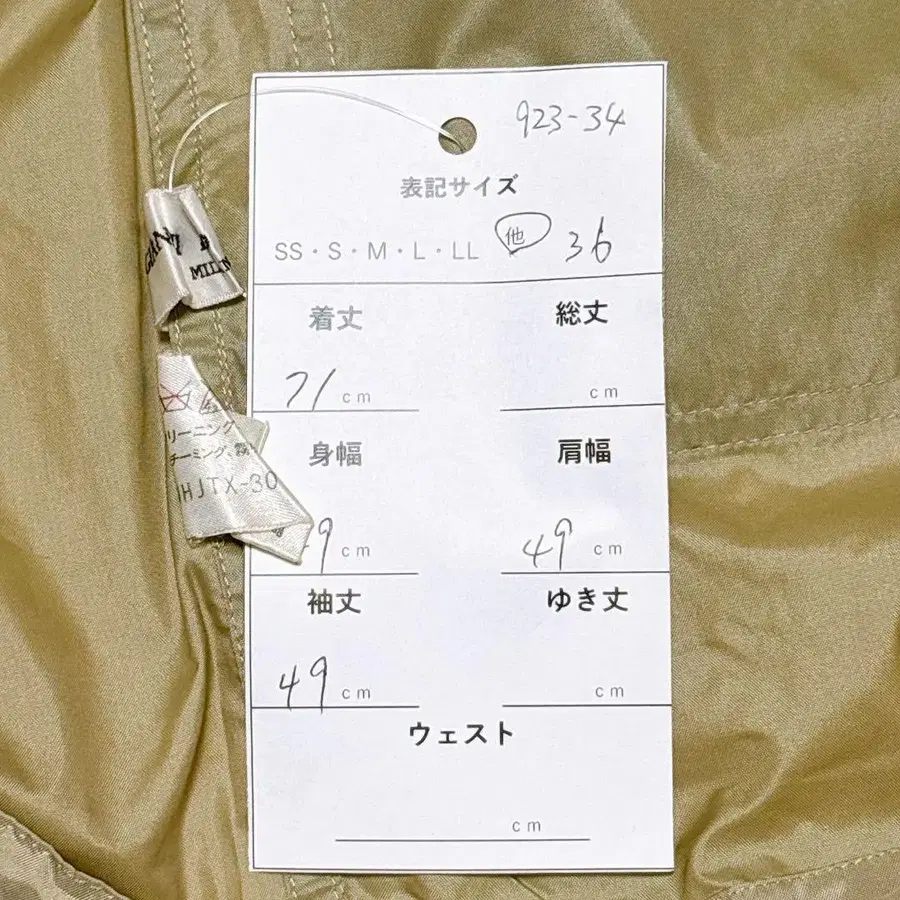 923-34
表記サイズ
SS・S・M・L・LL 他 36
着丈 総丈
71 cm cm
身幅 肩幅
9 cm 49 cm
袖丈 ゆき丈
49 cm cm
ウェスト
cm
MILI
リーニング
チーミング、霧
HJTX-30